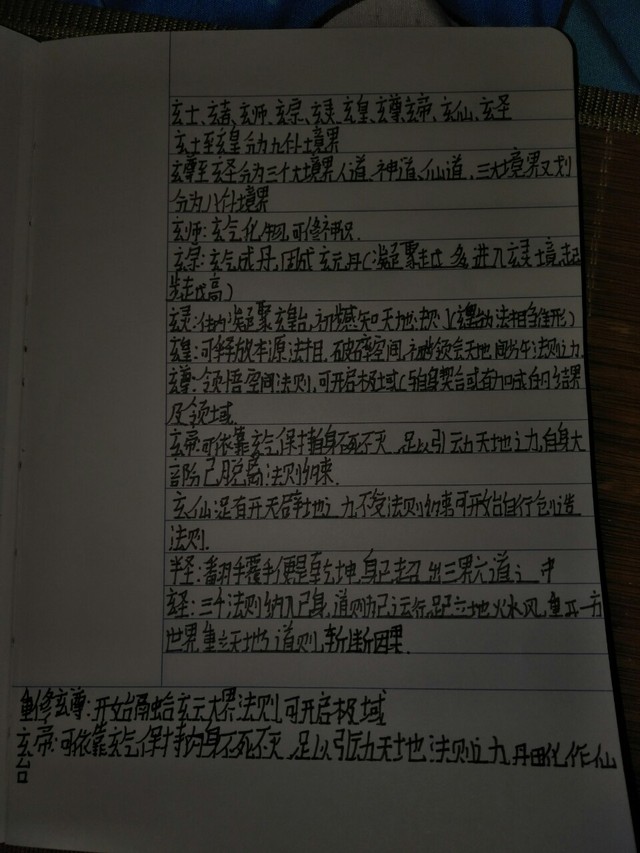 玄士、玄者、玄师、玄宗、玄灵、玄皇、玄尊、玄帝、玄仙、玄圣
玄士至玄皇分为九个境界
玄尊至玄圣分为三个大境界人道、神道、仙道,三大境界又划
分为八个境界
玄师:玄气化物,可修神识.
玄宗:玄气成丹,围成玄元丹(凝聚越多进入玄灵境起
步越高)
玄灵:体内凝聚玄皇台,初步感知天地法则
玄皇:可释放本源法相,破碎空间,初步领会天地间法则之力.
玄尊:领悟空间法则,可开启极域(与自身契合或有加成的结界
及领域.
玄帝:可依靠玄气保持自身不死不灭,足以引动天地之力,自身大
部份已脱离法则约束.
玄仙:足有开天辟地之力,不受法则约束可开始自行创造
法则.
半圣:翻手覆手便是乾坤,身已超出三界六道之中
玄圣:三千法则纳入己身,道则为己运行,天地火水风,重开一方
世界,重立天地道则,斩断因果.
重修玄尊:开始融合玄云大界法则,可开启极域
玄帝:可依靠玄气保持肉身不死不灭,足以引动天地法则之力,丹田化作仙
台